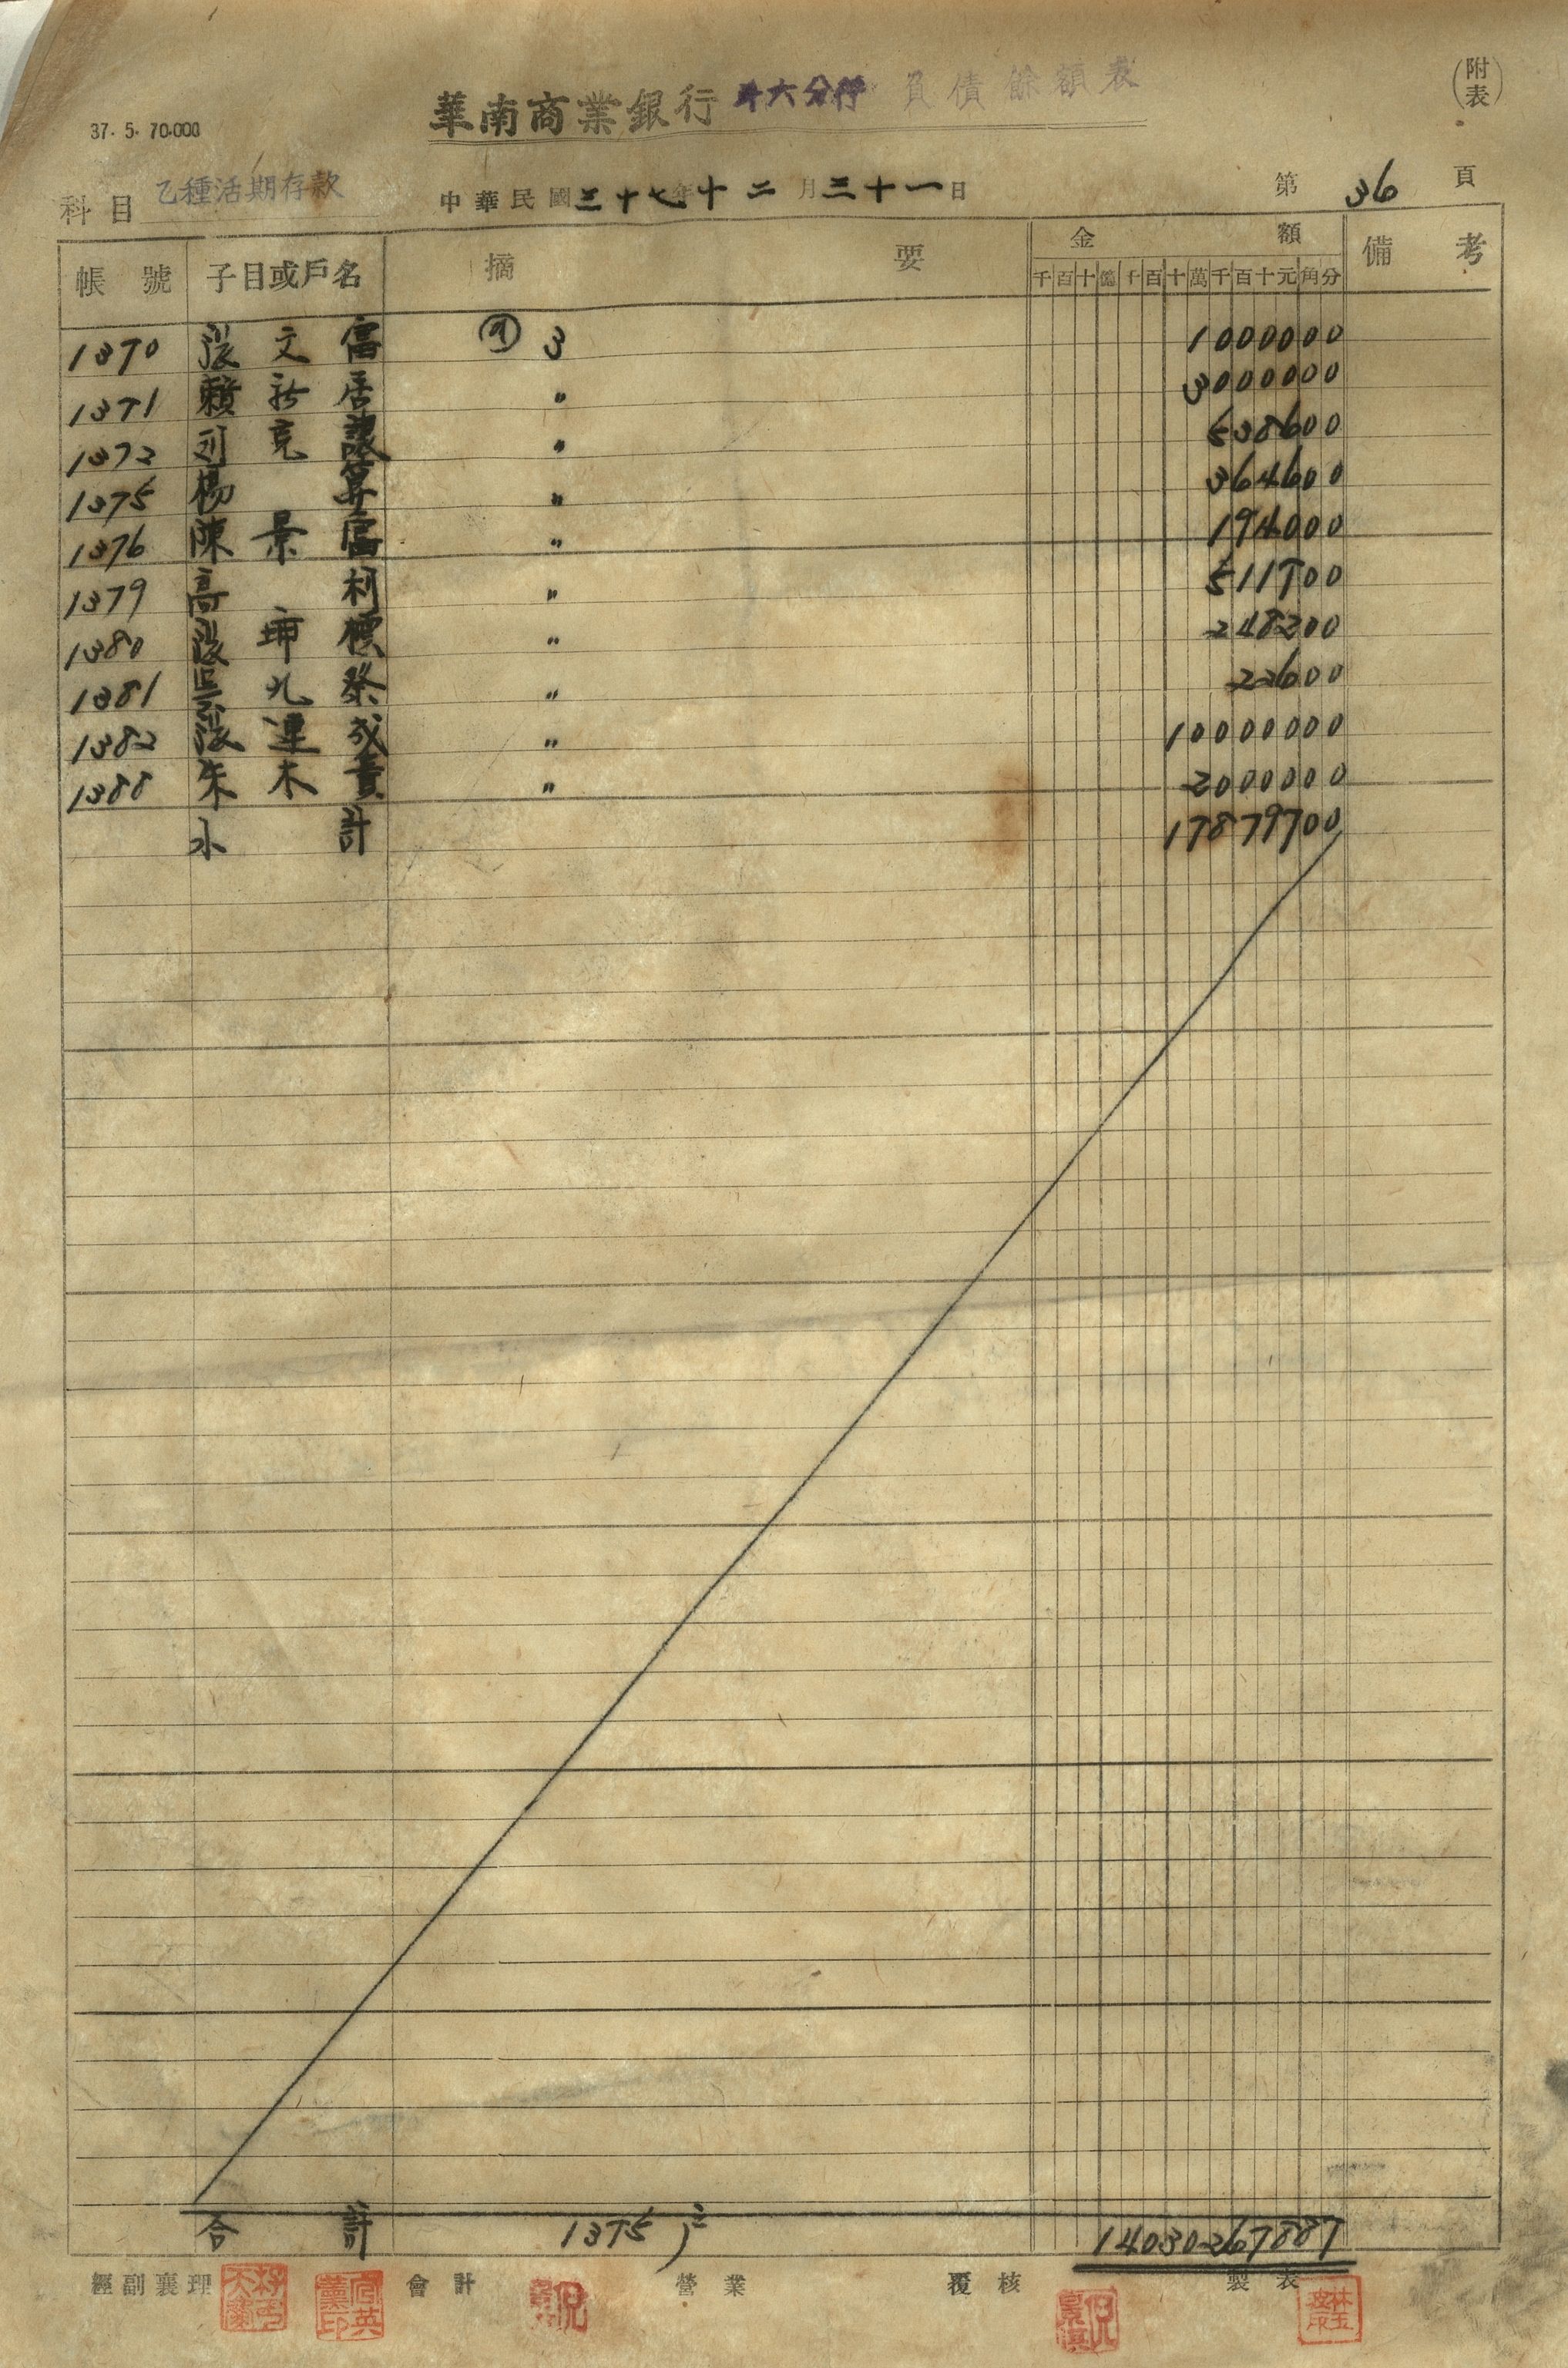 (附表)
華南商業銀行斗六分行 負債餘額表
37. 5. 70.000
科目 乙種活期存款 中華民國三十七年十二月三十一日 第36頁
帳號 子目或戶名 摘要 金額 備考
千百十億千百十萬千百十元角分
1370 張文富 3 1000000
1371 賴 居 〃 3000000
1372 克讓 〃 538600
1375 楊算 〃 364600
1376 陳景富 〃 194000
1379 高利 〃 511700
1380 張 標 〃 248200
1381 吳九發 〃 22600
1382 張連成 〃 10000000
1388 朱木貴 〃 2000000
小計 17879700
合計 1375 14030267887
經副襄理 會計 營業 覆核 製表